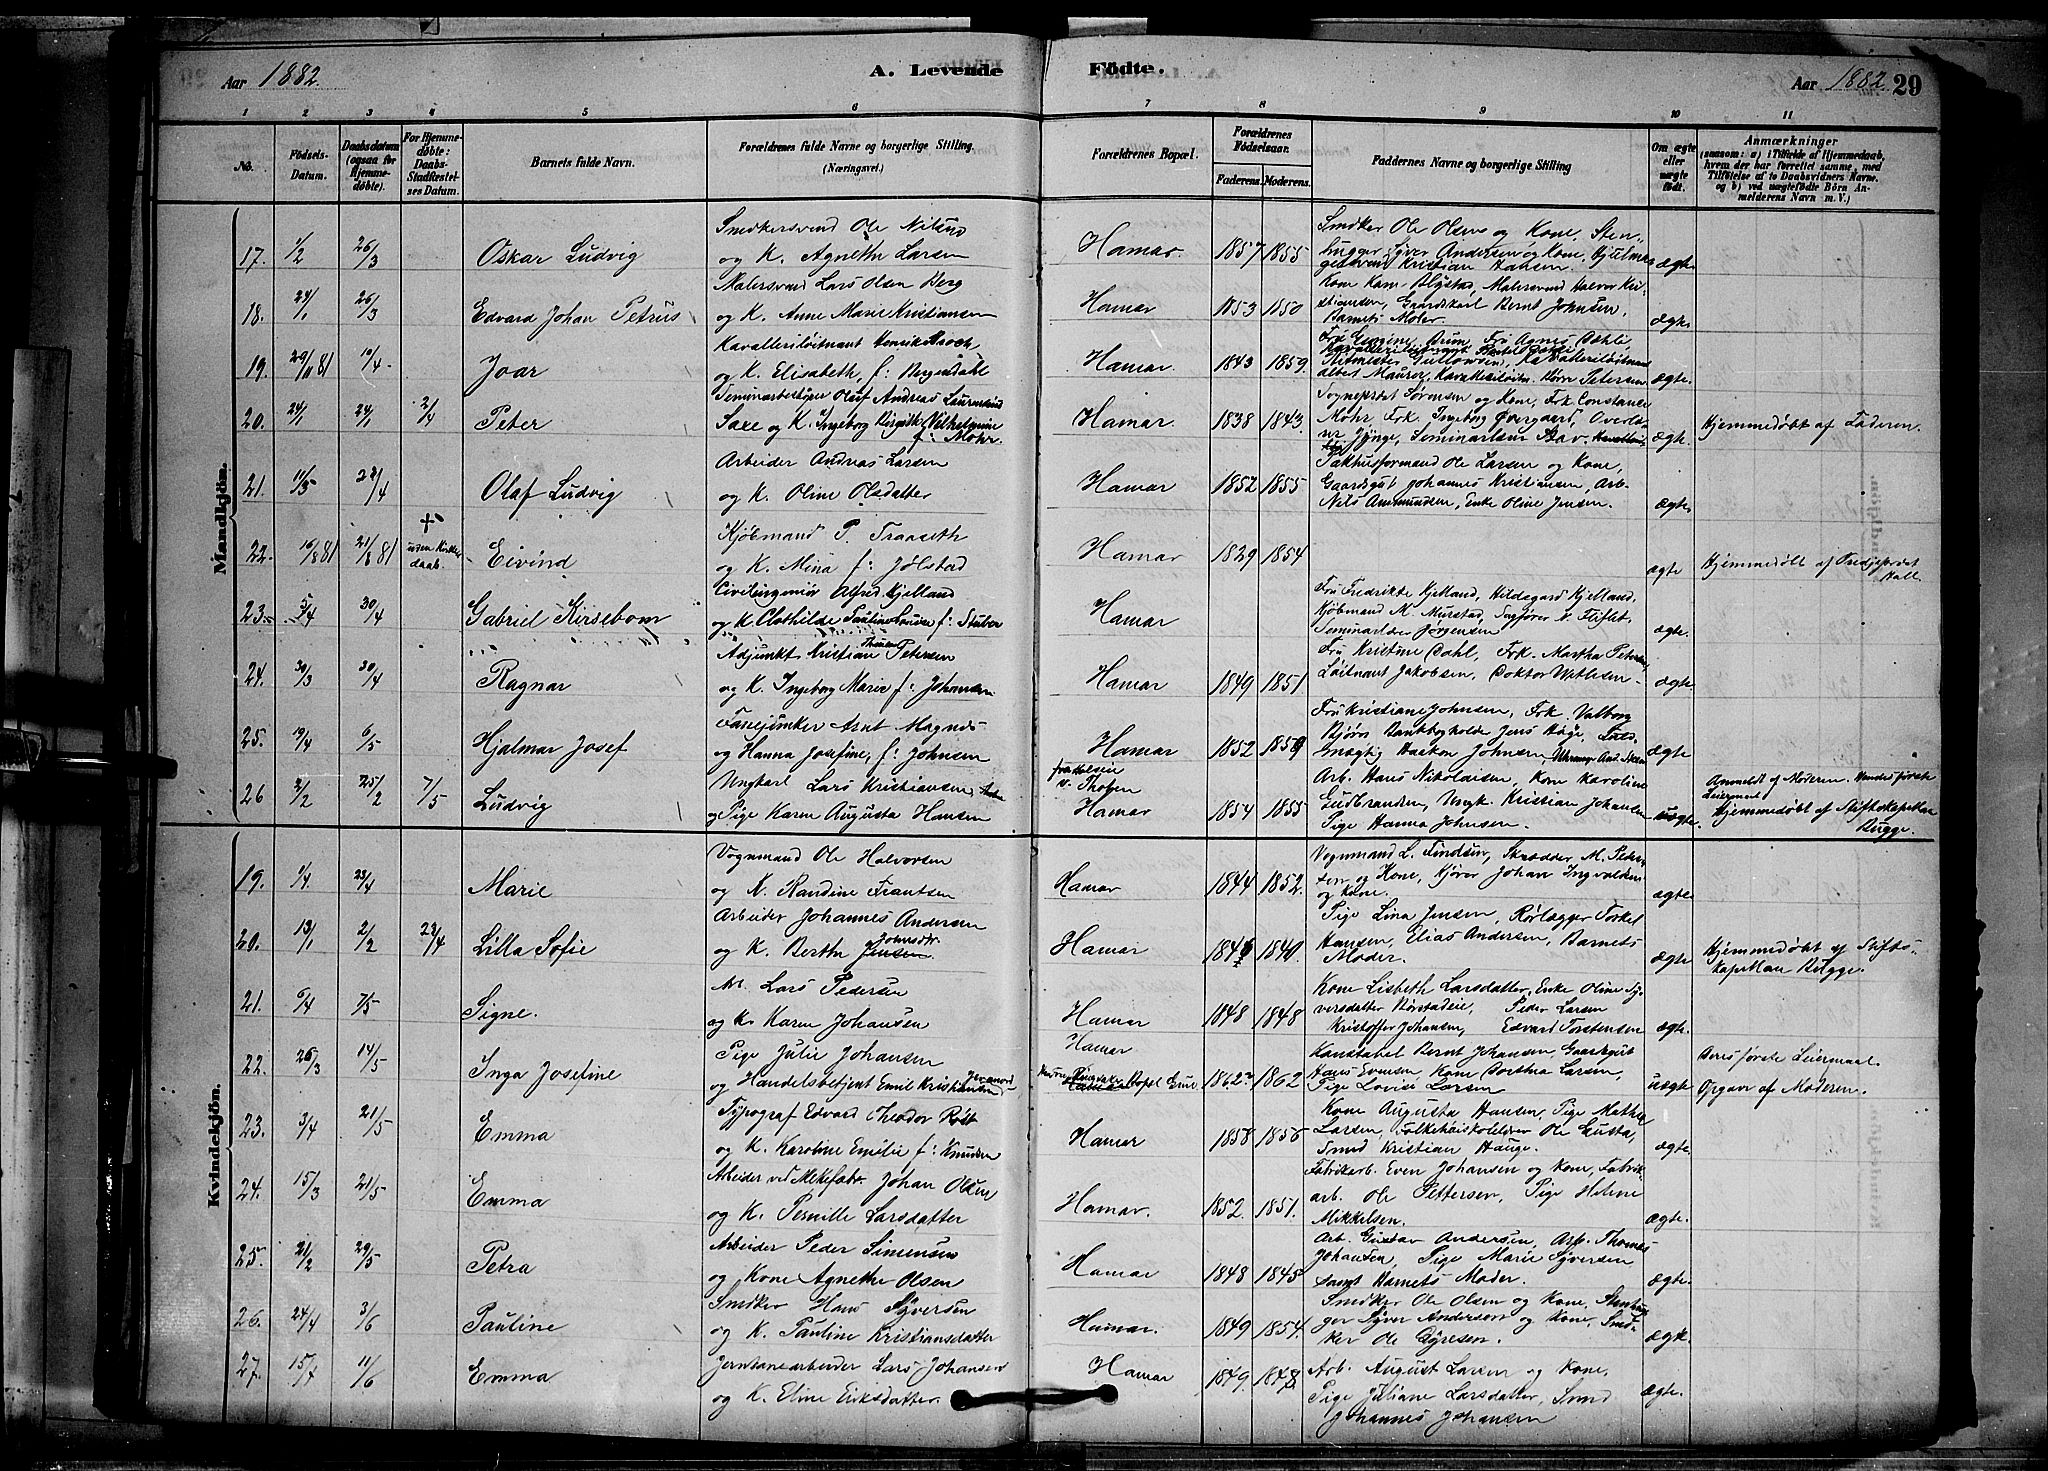 Aar 1882.
A. Levende
Födte.
Aar 1882. 29
1 2 3 4 5 6 7 8 9 10 11
No.
Födsels-Datum.
Daabsdatum (ogsaa for Hjemmedöbte).
For Hjemmedöbte: Daabs-Stadfæstelses Datum.
Barnets fulde Navn.
Forældrenes fulde Navne og borgerlige Stilling. (Næringsvei.)
Forældrenes Bopæl.
Forældrenes Födselsaar.
Faderens. Moderens.
Faddernes Navne og borgerlige Stilling
Om ægte eller uægte födt.
Anmærkninger
(saasom: a) i Tilfælde af Hjemmedaab, hvem der har forrettet samme, med Tilföielse af to Daabsvidners Navne. og b) ved uægtefödte Börn Anmelderens Navn m. V.)
Mandkjön.
17. 1/2 26/3 Oskar Ludvig
Snedkersvend Ole Nilsen
og K. Agnethe Larsen
Hamar. 1857 1855
Snedker Ole Olsen og Kone, Sten-
hugger Syver Andersen og Kone, Hjulma-
gersvend Kristian Jansen.
ægte
18. 24/1 26/3 Edvard Johan Petrus
Malersvend Lars Olsen Berg
og K. Anne Marie Kristiansen
Hamar 1853 1850
Malersvend Halvor Kri-
stiansen, Gaardskarl Bernt Johnsen,
Barnets Moder.
ægte
19. 29/11 81 10/4 Joar
Kavalleriløitnant Henrik
og K. Elisabeth, f: Bergendahl
Hamar. 1843 1859.
Albert Maurer, Kavalleriløitn. Petersen
ægte
20. 24/1 24/1 2/4 Peter
Seminarbestyrer Oluf Andreas
Saxe og K. Ingeborg Birgitte Vilhelmine
f: Mohr.
Hamar. 1838 1843.
Sogneprest Sørensen og Kone, Frk Constance
Mohr Frk. Ingeborg Overgaard,
ægte.
Hjemmedøbt af Faderen.
21. 11/5 23/4 Olaf Ludvig
Arbeider Andreas Larsen
og K. Oline Olsdatter
Hamar 1852 1855
Pakhusformand Ole Larsen og Kone,
Gaardsgut Johannes Kristiansen, Arb.
Nils Ammundsen, Enke Oline Jensen.
ægte
22. 16/8 81 21/8 81 + uden Kirke daab. Eivind
Kjøbmand P. Traaseth
og K. Mina f: Jølstad
Hamar 1829 1854
ægte
Hjemmedøbt af Tredjeprest
Hall
23. 5/4 30/4 Gabriel Kirsebom
Civilingeniør Alfred Kjelland
og K. Clothilde Pauline Louise f: Stuber
Hamar
Fru Fredrikke Kjelland, Hildegard Kjelland,
Kjøbmand M. Murstad, Sagfører N. Fliflet,
Seminarlærer Jørgensen
ægte.
24. 30/3 30/4 Ragnar
Adjunkt Kristian Petersen
og K. Ingeborg Marie f: Johansen
Hamar 1849 1851.
Fru Kristine Dahl, Frk. Martha Petersen,
Løitnant Jakobsen, Doktor
ægte.
25. 19/4 6/5 Hjalmar Josef
Fanejunker Arnt Magnus
og Hanna Josefine, f: Johnsen
Hamar 1852 1859
Fru Kristiane Johnsen, Frk. Valborg
Bjørn Bankbogholder Jens Høye, Fuld-
mægtig Haakon Johnsen,
ægte
26 2/2 25/2 7/5 Ludvig
Ungkarl Lars Kristiansen
og Pige Karen Augusta Hansen
Hamar 1854 1855
Arb. Hans Nikolaisen, Kone Karoline
Gudbrandsen, Ungk. Kristian Johansen
Pige Hanna Johnsen.
uægte.
Anmeldt af Moderen. Hendes første
Leiermaal.
Hjemmedøbt af Stiftskapellan
Bugge.
Kvindekjön.
19. 1/4. 23/4 Marie
Vognmand Ole Halvorsen
og K. Randine Frantsen
Hamar 1844 1852.
Vognmand L. Findsen, Skrædder M. Peder-
sen og Kone, Kjører Johan Ingvaldsen
og Kone.
ægte
20. 13/1 2/2 23/4 Lilla Sofie
Arbeider Johannes Andersen
og K. Berthe Johnsdtr. Jensen.
Hamar 1840.
Pige Lina Jensen, Rørlægger Torkel
Hansen, Elias Andersen, Barnets
Moder.
ægte
Hjemmedøbt af Stifts-
kapellan Bugge.
21. 6/4 7/5 Signe.
Ar. Lars Pedersen
og K. Karen Johansen
Hamar 1848 1848
Kone Lisbeth Larsdatter, Enke Oline Sy-
versdatter Børstadeie, Peder Larsen
Kristoffer Johansen, Edvard Torstensen
ægte.
22. 26/3 14/5 Inga Josefine
Pige Julie Johansen
og Handelsbetjent Emil Kristiansen
Hamar
1862 1862
Konstabel Bernt Johansen, Gaardsgut
Hans Evensen, Kone Dorthea Larsen,
Pige Lovise Larsen
uægte
Deres første Leiermaal.
Opgave af Moderen.
23. 3/4 21/5 Emma
Typograf Edvard Theodor Røst
og K. Karoline Emilie f: Knudsen
Hamar 1858 1856
Kone Augusta Hansen, Pige Mathea
Larsen, Folkehøiskolelærer Ole Gusta,
Smed Kristian Hauge.
ægte
24. 15/3 21/5 Emma
Arbeider ved Mekfabr. Johan Olsen
og K. Pernille Larsdatter
Hamar. 1852. 1851.
Fabrikarb. Even Johansen og Kone, Fabrik-
arb. Ole Pettersen, Pige Helene
Mikkelsen.
ægte.
25. 21/2 29/5 Petra
Arbeider Peder Simensen
og Kone Agnethe Olsen
Hamar 1848 1845
Arb. Gustav Andersen, Arb. Thomas
Johansen, Pige Marie Syversen
samt Barnets Moder.
ægte.
26. 24/4 3/6 Pauline
Snedker Hans Syversen
og K. Pauline Kristiansdatter
Hamar. 1849 1854.
Snedker Ole Olsen og Kone, Stenhug-
ger Syver Andersen og Kone, Sned-
ker Ole
ægte.
27. 15/4 11/6 Emma
Jernbanearbeider Lars Johansen
og K. Eline Eriksdatter.
Hamar 1849. 1848
Arb. August Larsen og Kone,
Pige Juliane Larsdatter, Smed
Johannes Johansen
ægte.